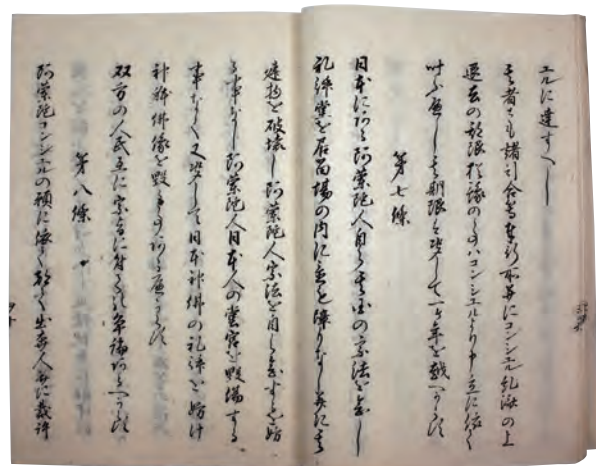 エルに達すへし
其者とも諸引合等奉行所并にコンシエル糺済の上
退去の期限猶豫の事ハコンシエルより申立に依て
叶ふ可し其期限は決して一ケ年を越へからす
第七條
日本に在る阿蘭陀人自ら其国の宗法を念し
礼拝堂を居留場の内に置も障りなし并に其
建物を破壊し阿蘭陀人宗法を自ら念するを妨
る事なし阿蘭陀人日本人の堂宮を毀傷する
事なく又決して日本神佛の礼拝を妨け
神體佛像を毀る事ある可からす
双方の人民互に宗旨に付ての争論あるへからす
第八條
阿蘭陀コンシエルの願に依て都て出奔人并に裁許